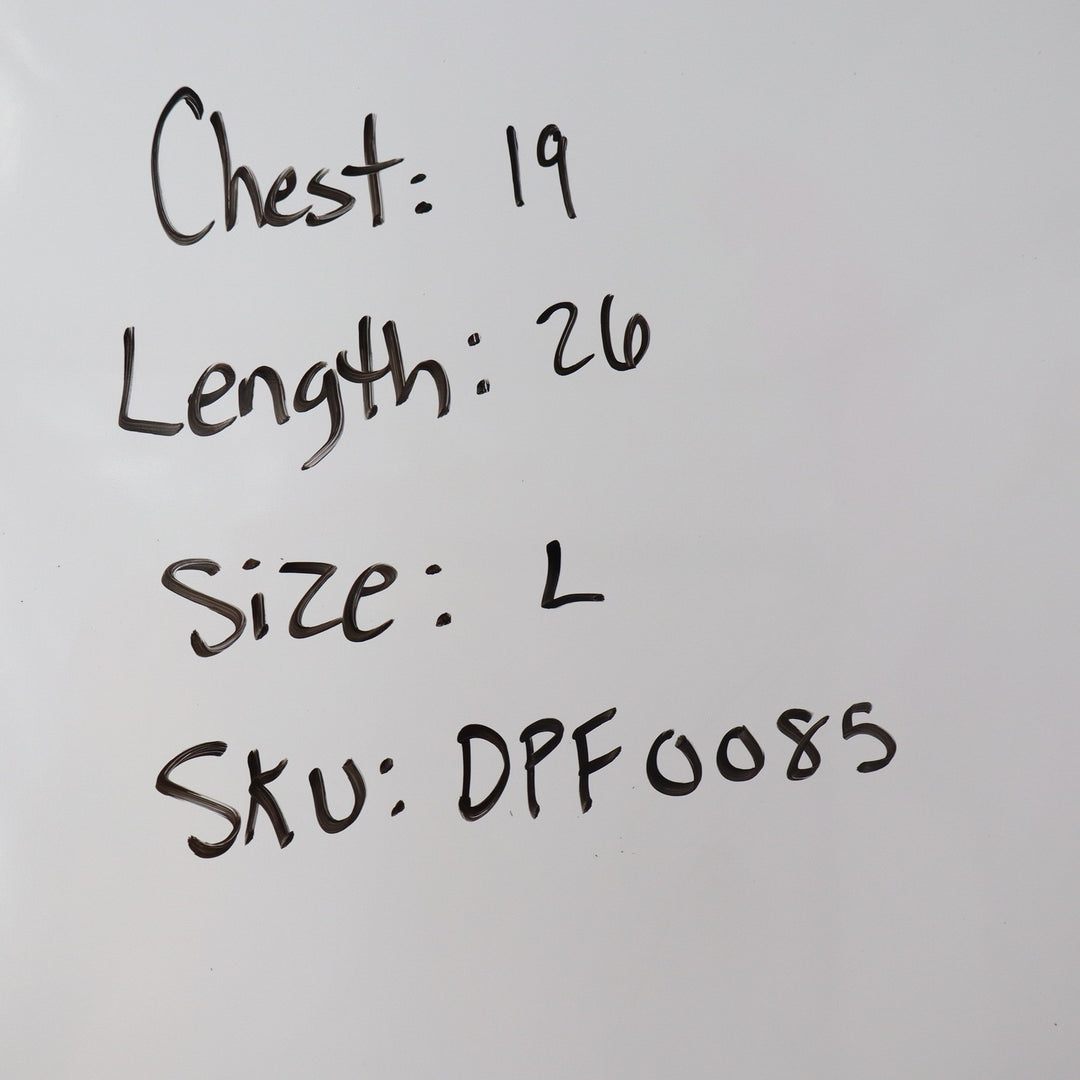 Chest: 19
Length: 26
Size: L
Sku: DPF0085